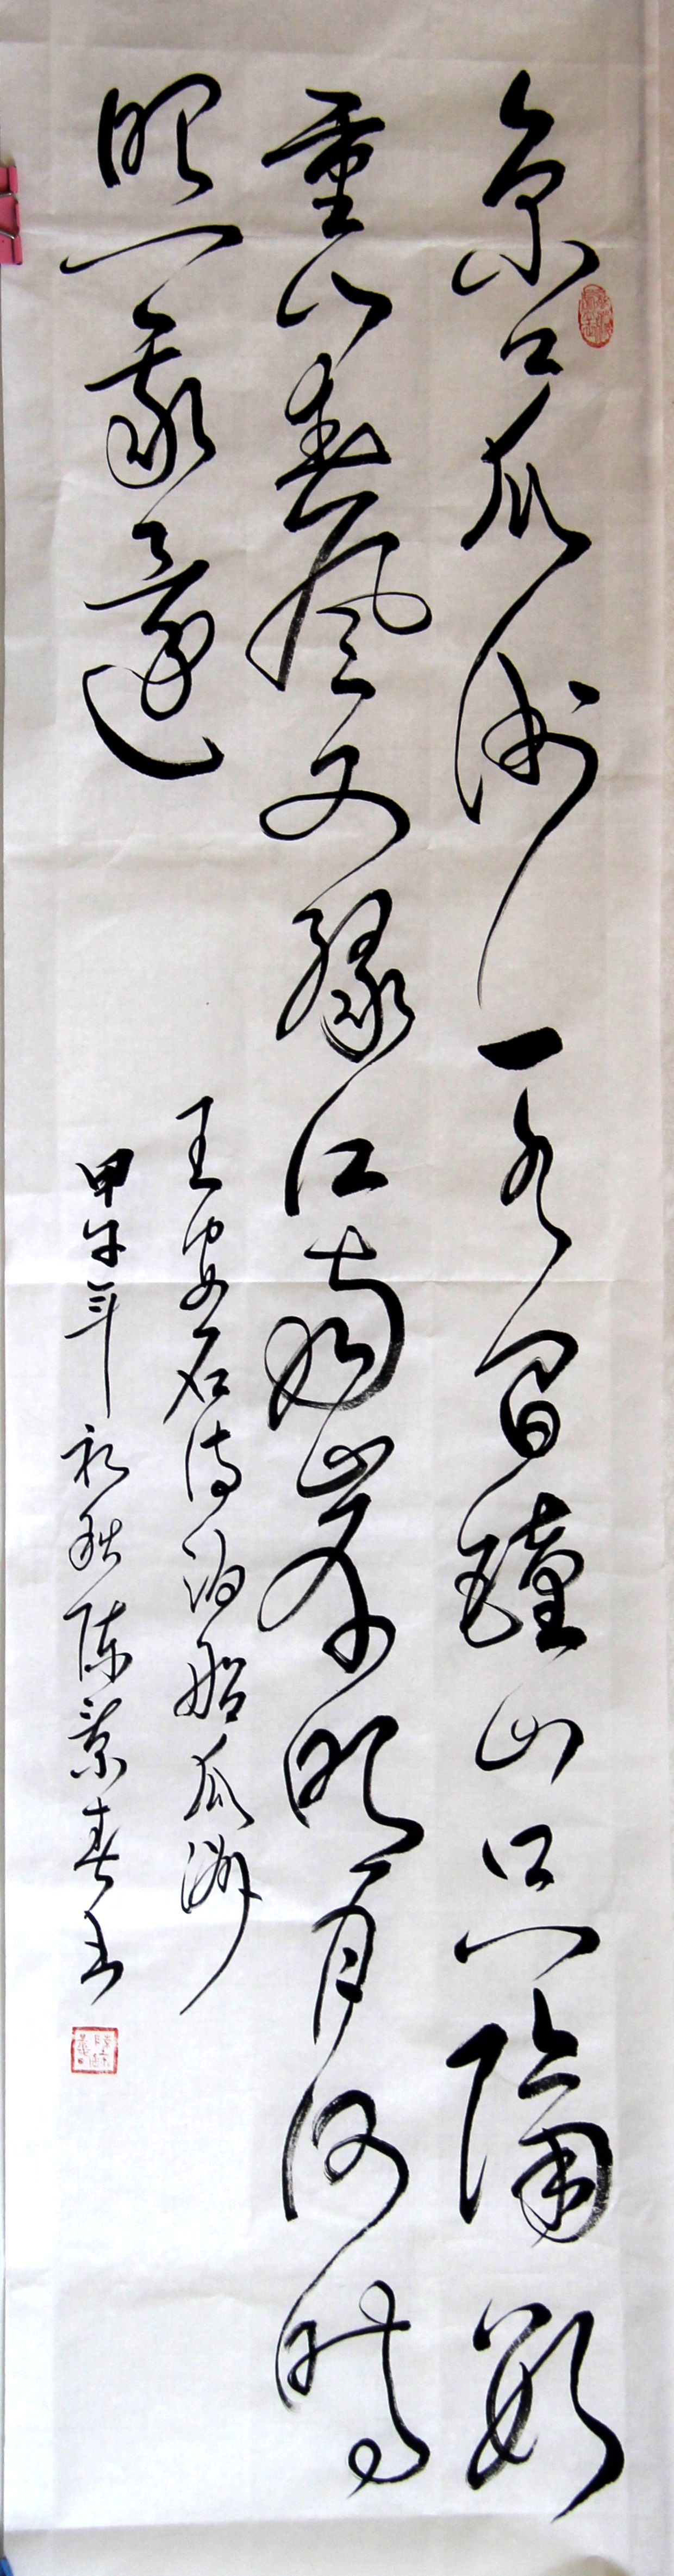 京口瓜洲一水間鐘山只隔數
重山春風又綠江南岸明月何時
照我還
王安石詩泊船瓜洲
甲午年初秋陳景春书